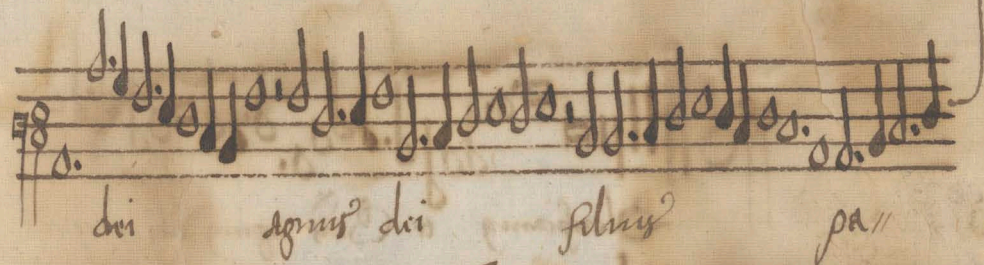 dei agnus dei filius pa//